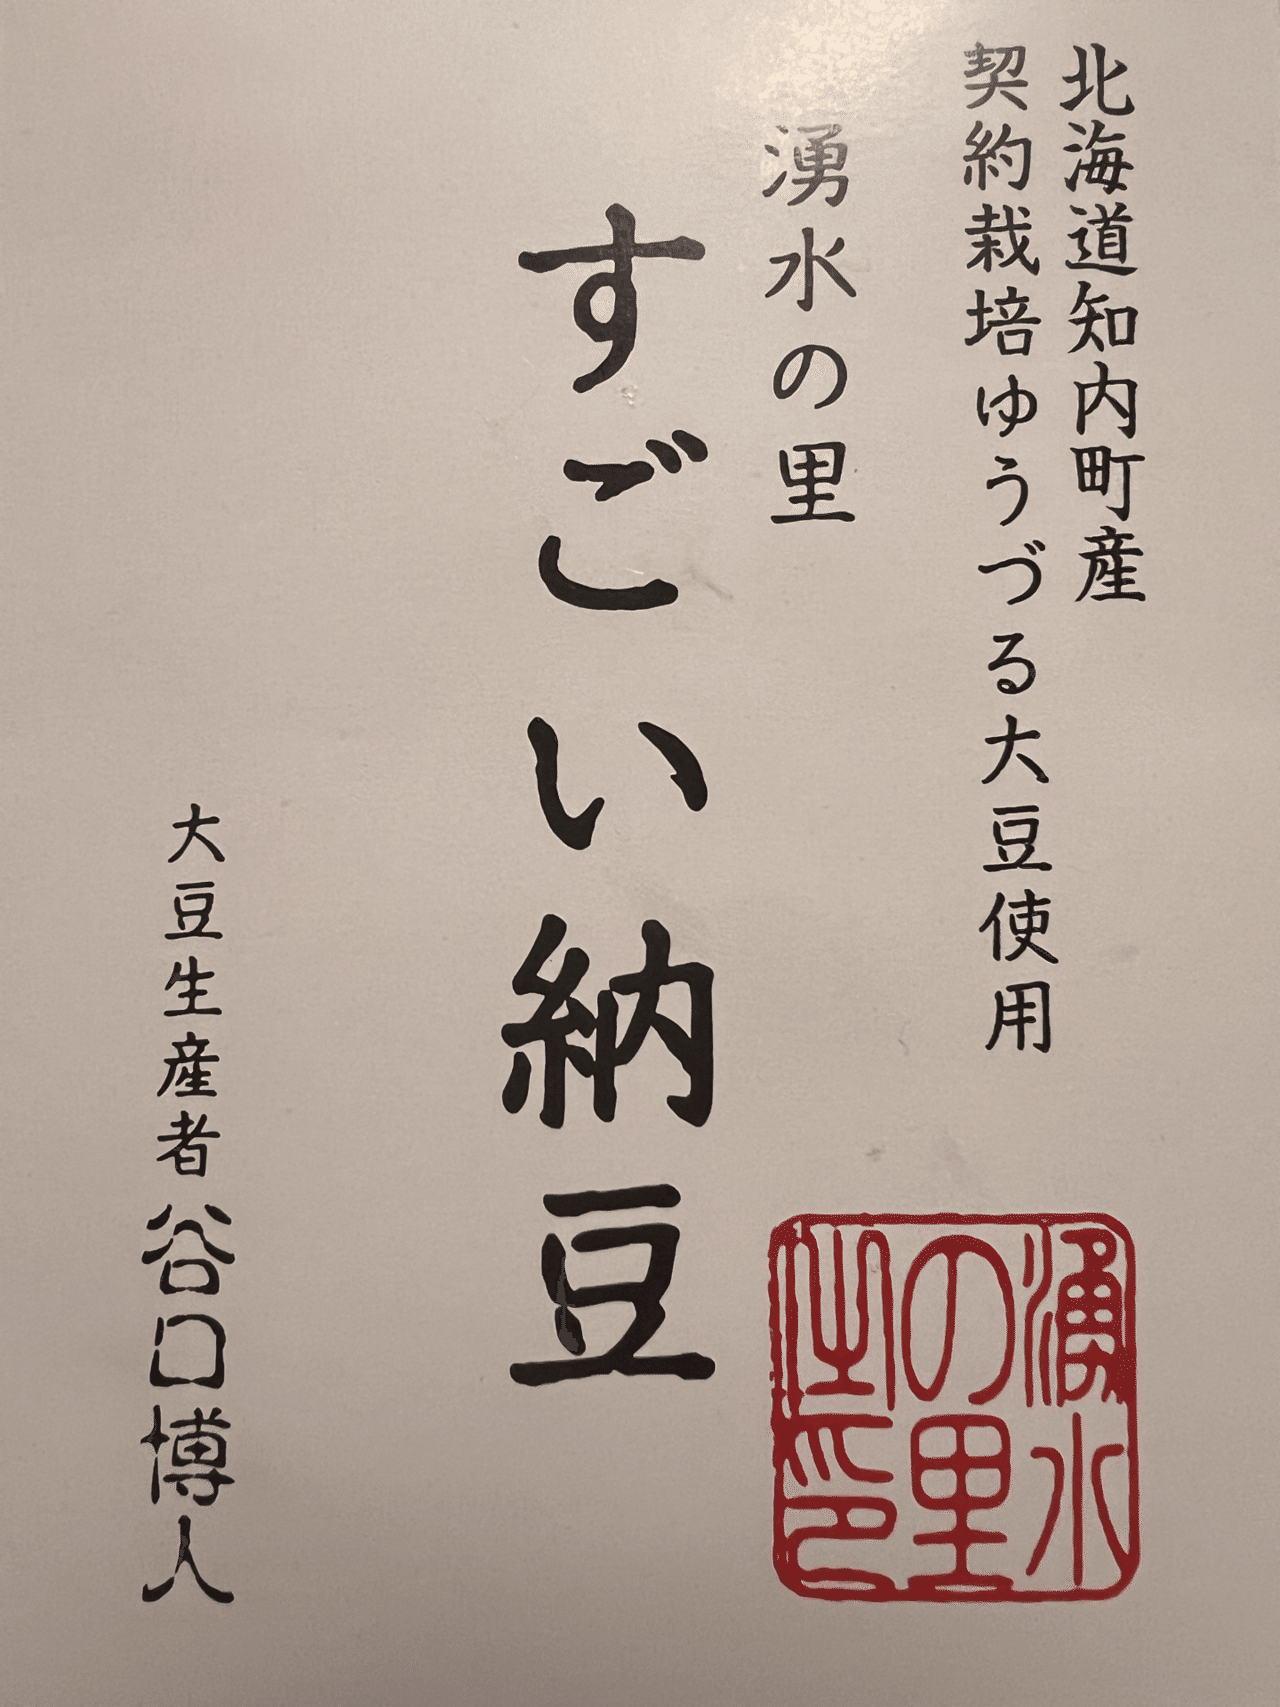 北海道知内町産
契約栽培ゆうづる大豆使用
湧水の里
すごい納豆
大豆生産者 谷口博人
湧水
の里
之印